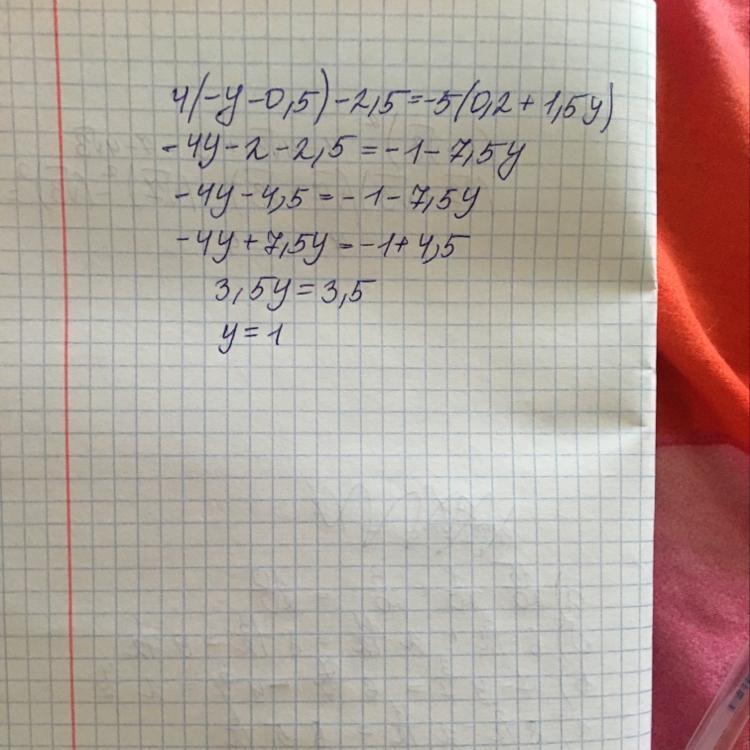 4(-y-0,5)-2,5=-5(0,2+1,5y)
-4y-2-2,5=-1-7,5y
-4y-4,5=-1-7,5y
-4y+7,5y=-1+4,5
3,5y=3,5
y=1